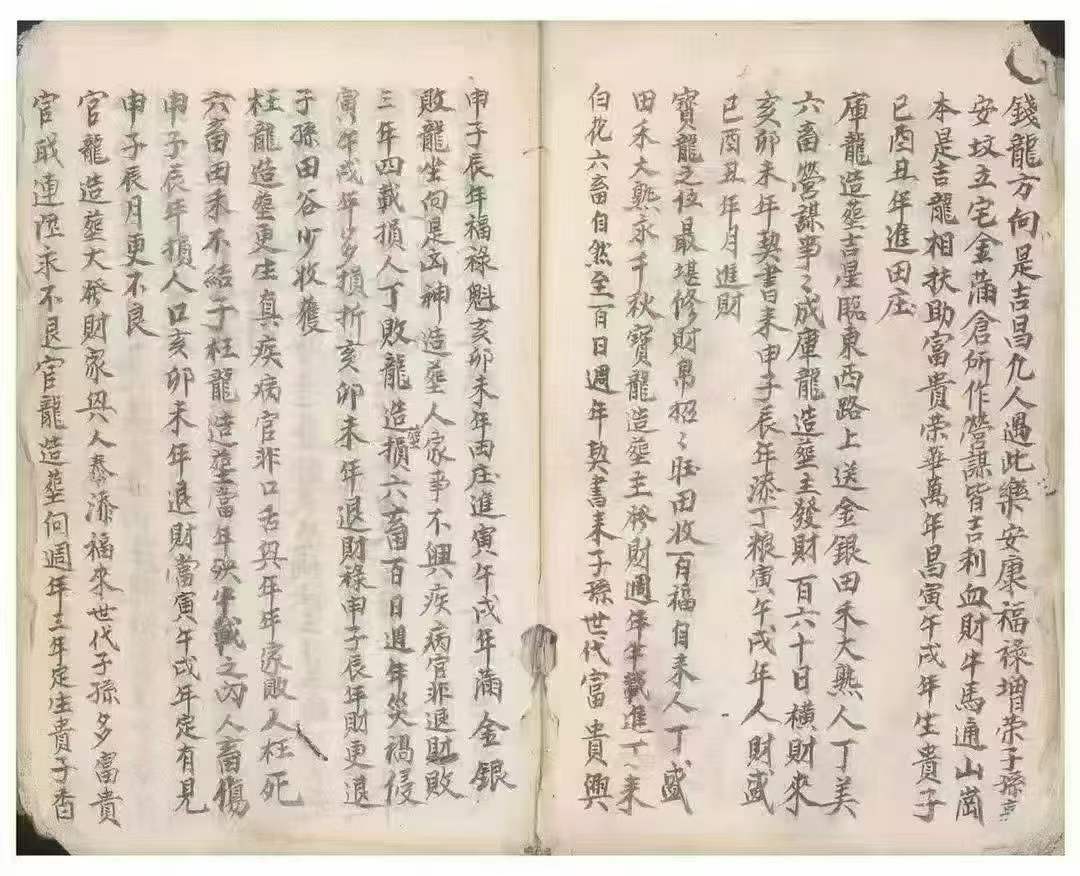 錢龍方向是吉昌允人遇此樂安康福祿增荣子孫
安坟立宅金滿倉所作營謀皆吉利血財牛馬通山崗
本是吉龍相扶助富貴荣華萬年昌寅午戌年生貴子
巳酉丑年進田庄
庫龍造塟吉星臨東西路上送金銀田禾大熟人丁美
六畜營謀事〻成庫龍造塟主發財百六十日横財來
亥卯未年契書来申子辰年添丁粮寅午戌年人財盛
巳酉丑年月進財
寳龍之位最堪修財帛招〻旺田收百福自来人丁盛
田禾大熟永千秋寳龍造塟主發財週年半載進丁来
白花六畜自然至一百日週年契書来子孫世代富貴興
申子辰年福祿魁亥卯未年田庄進寅午戌年滿金銀
敗龍坐向是凶神造塟人家事不興疾病官非退財敗
三年四載損人丁敗龍造塟損六畜百日週年災禍侵
寅午戌年多損折亥卯未年退財祿申子辰年財更退
子孫田谷少收獲
枉龍造塟更生真疾病官非口舌興年年家敗人枉死
六畜田禾不結子枉龍造塟當年殃半載之内人畜傷
申子辰年損人口亥卯未年退財當寅午戌年定有見
申子辰月更不良
官龍造塟大發財家興人泰添福來世代子孫多富貴
官職連陞永不退官龍造塟向週年三年定生貴子香